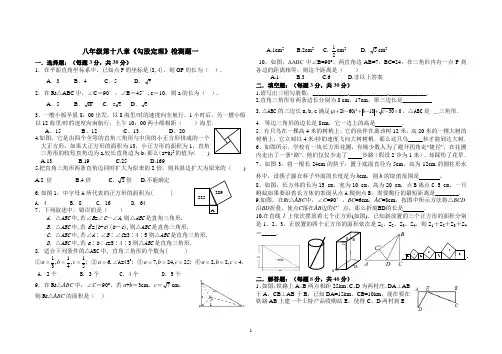 八年级第十八章《勾股定理》检测题一
一.选择题:(每题3分,共30分)
1.在平面直角坐标系中,已知点P的坐标是(3,4),则OP的长为( )。
A、3 B、4 C、5 D、√7
2、在Rt△ABC中,∠C=90°、∠B=45°,c=10,则a的长为( )。
3、一艘小船早晨8:00出发,以8海里/时的速度向东航行,1小时后,另一艘小船以12海里/时的速度向南航行,上午10:00两小船相距( )海里。
A、15 B、12 C、13 D、20
4.如图,它是由四个全等的直角三角形与中间的小正方形拼成的一个
大正方形,如果大正方形的面积为13,小正方形的面积为1,直角
三角形的较短直角边为a,较长直角边为b,那么(a+b)²的值为( )
A.13 B.19 C.25 D.169
5.把直角三角形两条直角边同时扩大为原来的2倍,则其斜边扩大为原来的( )
A.2倍 B.4倍 C.√2倍 D.不能确定
6.如图1,中字母A所代表的正方形的面积为( )
A. 4 B. 8 C. 16 D. 64
7、下列叙述中,错误的是( )
A. △ABC中,若∠B=∠C-∠A,则△ABC是直角三角形.
B. △ABC中,若a²=(b+c)(b-c),则△ABC是直角三角形.
C. △ABC中,若∠A∶∠B∶∠C=3∶4∶5则△ABC是直角三角形.
D. △ABC中,若a∶b∶c=5∶4∶3则△ABC是直角三角形.
8.适合下列条件的△ABC中,直角三角形的个数为( )
A. 2个 B. 3个 C. 4个 D. 5个
9、在Rt△ABC中,∠C=90°,若a+b=3cm,c=√7cm,
则Rt△ABC的面积是( )
A.1cm² B.2cm² C.1/2cm² D.√5cm²
10、如图,ΔABC中∠B=90°,两直角边AB=7、BC=24,在三角形内有一点P到
各边的距离相等,则这个距离是( )
A.1 B.3 C.6 D.非以上答案
二.填空题:(每题3分,共30分)
1.请写出三组勾股数:
2.直角三角形有两条边长分别为8cm、17cm,第三边长是
4、等边三角形的边长是8cm,它一边上的高是
5、有只鸟在一棵高4米的树梢上,它的伙伴在离该树12米,高20米的一棵大树的
树梢上,它立刻以4米/秒的速度飞向大树树梢,那么这只鸟 秒才能到达大树。
6、如图所示,学校有一块长方形花圃,有极少数人为了避开拐角走“捷径”,在花圃
内走出了一条“路”.他们仅仅少走了 步路(假设2步为1米),却踩伤了花草.
7、如图5,将一根长24cm的筷子,置于底面直径为5cm,高为12cm的圆柱形水
杯中,设筷子露在杯子外面的长度为hcm,则h的取值范围是
8、如图,长方体的长为15cm,宽为10cm,高为20cm,点B离点C5cm,一只
蚂蚁如果要沿着长方体的表面从点A爬到点B,需要爬行的最短距离是
9.如图,在Rt△ABC中,∠C=90°、BC=6cm、AC=8cm,按图中所示方法将△BCD
沿BD折叠,使点C落在AB边的C′点,那么折痕BD的长是
10.在直线l上依次摆放着七个正方形(如图)。已知斜放置的三个正方形的面积分别
是1、2、3,正放置的四个正方形的面积依次是S₁、S₂、S₃、S₄,则S₁+S₂+S₃+S₄
三.解答题:(每题8分,共40分)
1.如图,铁路上A、B两点相距25km,C、D为两村庄,DA⊥AB
于A,CB⊥AB于B,已知DA=15km,CB=10km,现在要在
铁路AB上建一个土特产品收购站E,使得C、D两村到E
1